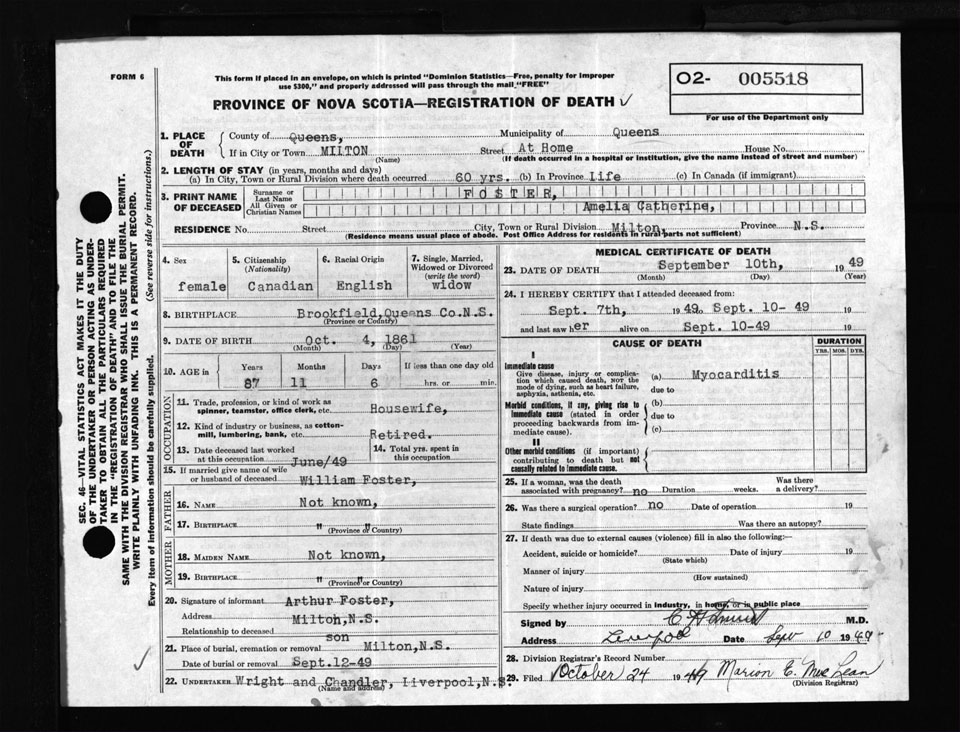 FORM 6
This form if placed in an envelope, on which is printed "Dominion Statistics—Free, penalty for improper
use $300," and properly addressed will pass through the mail "FREE"
O2- 005518
For use of the Department only
PROVINCE OF NOVA SCOTIA—REGISTRATION OF DEATH ✓
1. PLACE OF DEATH
County of Queens, Municipality of Queens
If in City or Town MIlTON Street At Home House No.
(Name) (If death occurred in a hospital or institution, give the name instead of street and number)
2. LENGTH OF STAY (in years, months and days)
(a) In City, Town or Rural Division where death occurred 60 yrs. (b) In Province Life (c) In Canada (if immigrant)
3. PRINT NAME OF DECEASED
Surname or Last Name FOSTER,
All Given or Christian Names Amelia Catherine,
RESIDENCE No. Street City, Town or Rural Division Milton, Province N.S.
(Residence means usual place of abode. Post Office Address for residents in rural parts not sufficient)
4. Sex
female
5. Citizenship
(Nationality)
Canadian
6. Racial Origin
English
7. Single, Married,
Widowed or Divorced
(write the word)
widow
8. BIRTHPLACE Brookfield, Queens Co.N.S.
(Province or Country)
9. DATE OF BIRTH Oct. 4, 1861
(Month) (Day) (Year)
10. AGE in
Years Months Days If less than one day old
87 11 6 hrs. or min.
OCCUPATION
11. Trade, profession, or kind of work as
spinner, teamster, office clerk, etc. Housewife,
12. Kind of industry or business, as cotton-
mill, lumbering, bank, etc. Retired.
13. Date deceased last worked
at this occupation June/49
14. Total yrs. spent in
this occupation
15. If married give name of wife
or husband of deceased William Foster,
FATHER
16. NAME Not known,
17. BIRTHPLACE " "
(Province or Country)
MOTHER
18. MAIDEN NAME Not known,
19. BIRTHPLACE " "
(Province or Country)
20. Signature of informant Arthur Foster,
Address Milton, N.S.
Relationship to deceased son
21. Place of burial, cremation or removal Milton, N.S.
Date of burial or removal Sept.12-49
22. UNDERTAKER Wright and Chandler, Liverpool, N.S.
(Name and address)
MEDICAL CERTIFICATE OF DEATH
23. DATE OF DEATH September 10th, 1949
(Month) (Day) (Year)
24. I HEREBY CERTIFY that I attended deceased from:
Sept. 7th, 1949 to Sept. 10- 49 19
and last saw her alive on Sept. 10-49 19
CAUSE OF DEATH
DURATION
YRS. MOS. DYS.
I
Immediate cause
Give disease, injury or complica-
tion which caused death, NOT the
mode of dying, such as heart failure,
asphyxia, asthenia, etc.
(a) Myocarditis
due to
Morbid conditions, if any, giving rise to
immediate cause (stated in order
proceeding backwards from im-
mediate cause).
(b)
due to
(c)
II
Other morbid conditions (if important)
contributing to death but not
causally related to immediate cause.
25. If a woman, was the death
associated with pregnancy? no Duration weeks. Was there
a delivery?
26. Was there a surgical operation? no Date of operation 19
State findings Was there an autopsy?
27. If death was due to external causes (violence) fill in also the following:—
Accident, suicide or homicide? Date of injury 19
(State which)
Manner of injury
(How sustained)
Nature of injury
Specify whether injury occurred in industry, in home, or in public place
Signed by M.D.
Address Liverpool Date Sept 10 1949
28. Division Registrar's Record Number
29. Filed October 24 1949 Marion E. MacLean
(Division Registrar)
SEC. 46—VITAL STATISTICS ACT MAKES IT THE DUTY
OF THE UNDERTAKER OR PERSON ACTING AS UNDER-
TAKER TO OBTAIN ALL THE PARTICULARS REQUIRED
IN THE "REGISTRATION OF DEATH" AND TO FILE THE
SAME WITH THE DIVISION REGISTRAR WHO SHALL ISSUE THE BURIAL PERMIT.
WRITE PLAINLY WITH UNFADING INK. THIS IS A PERMANENT RECORD.
Every item of information should be carefully supplied. (See reverse side for instructions.)